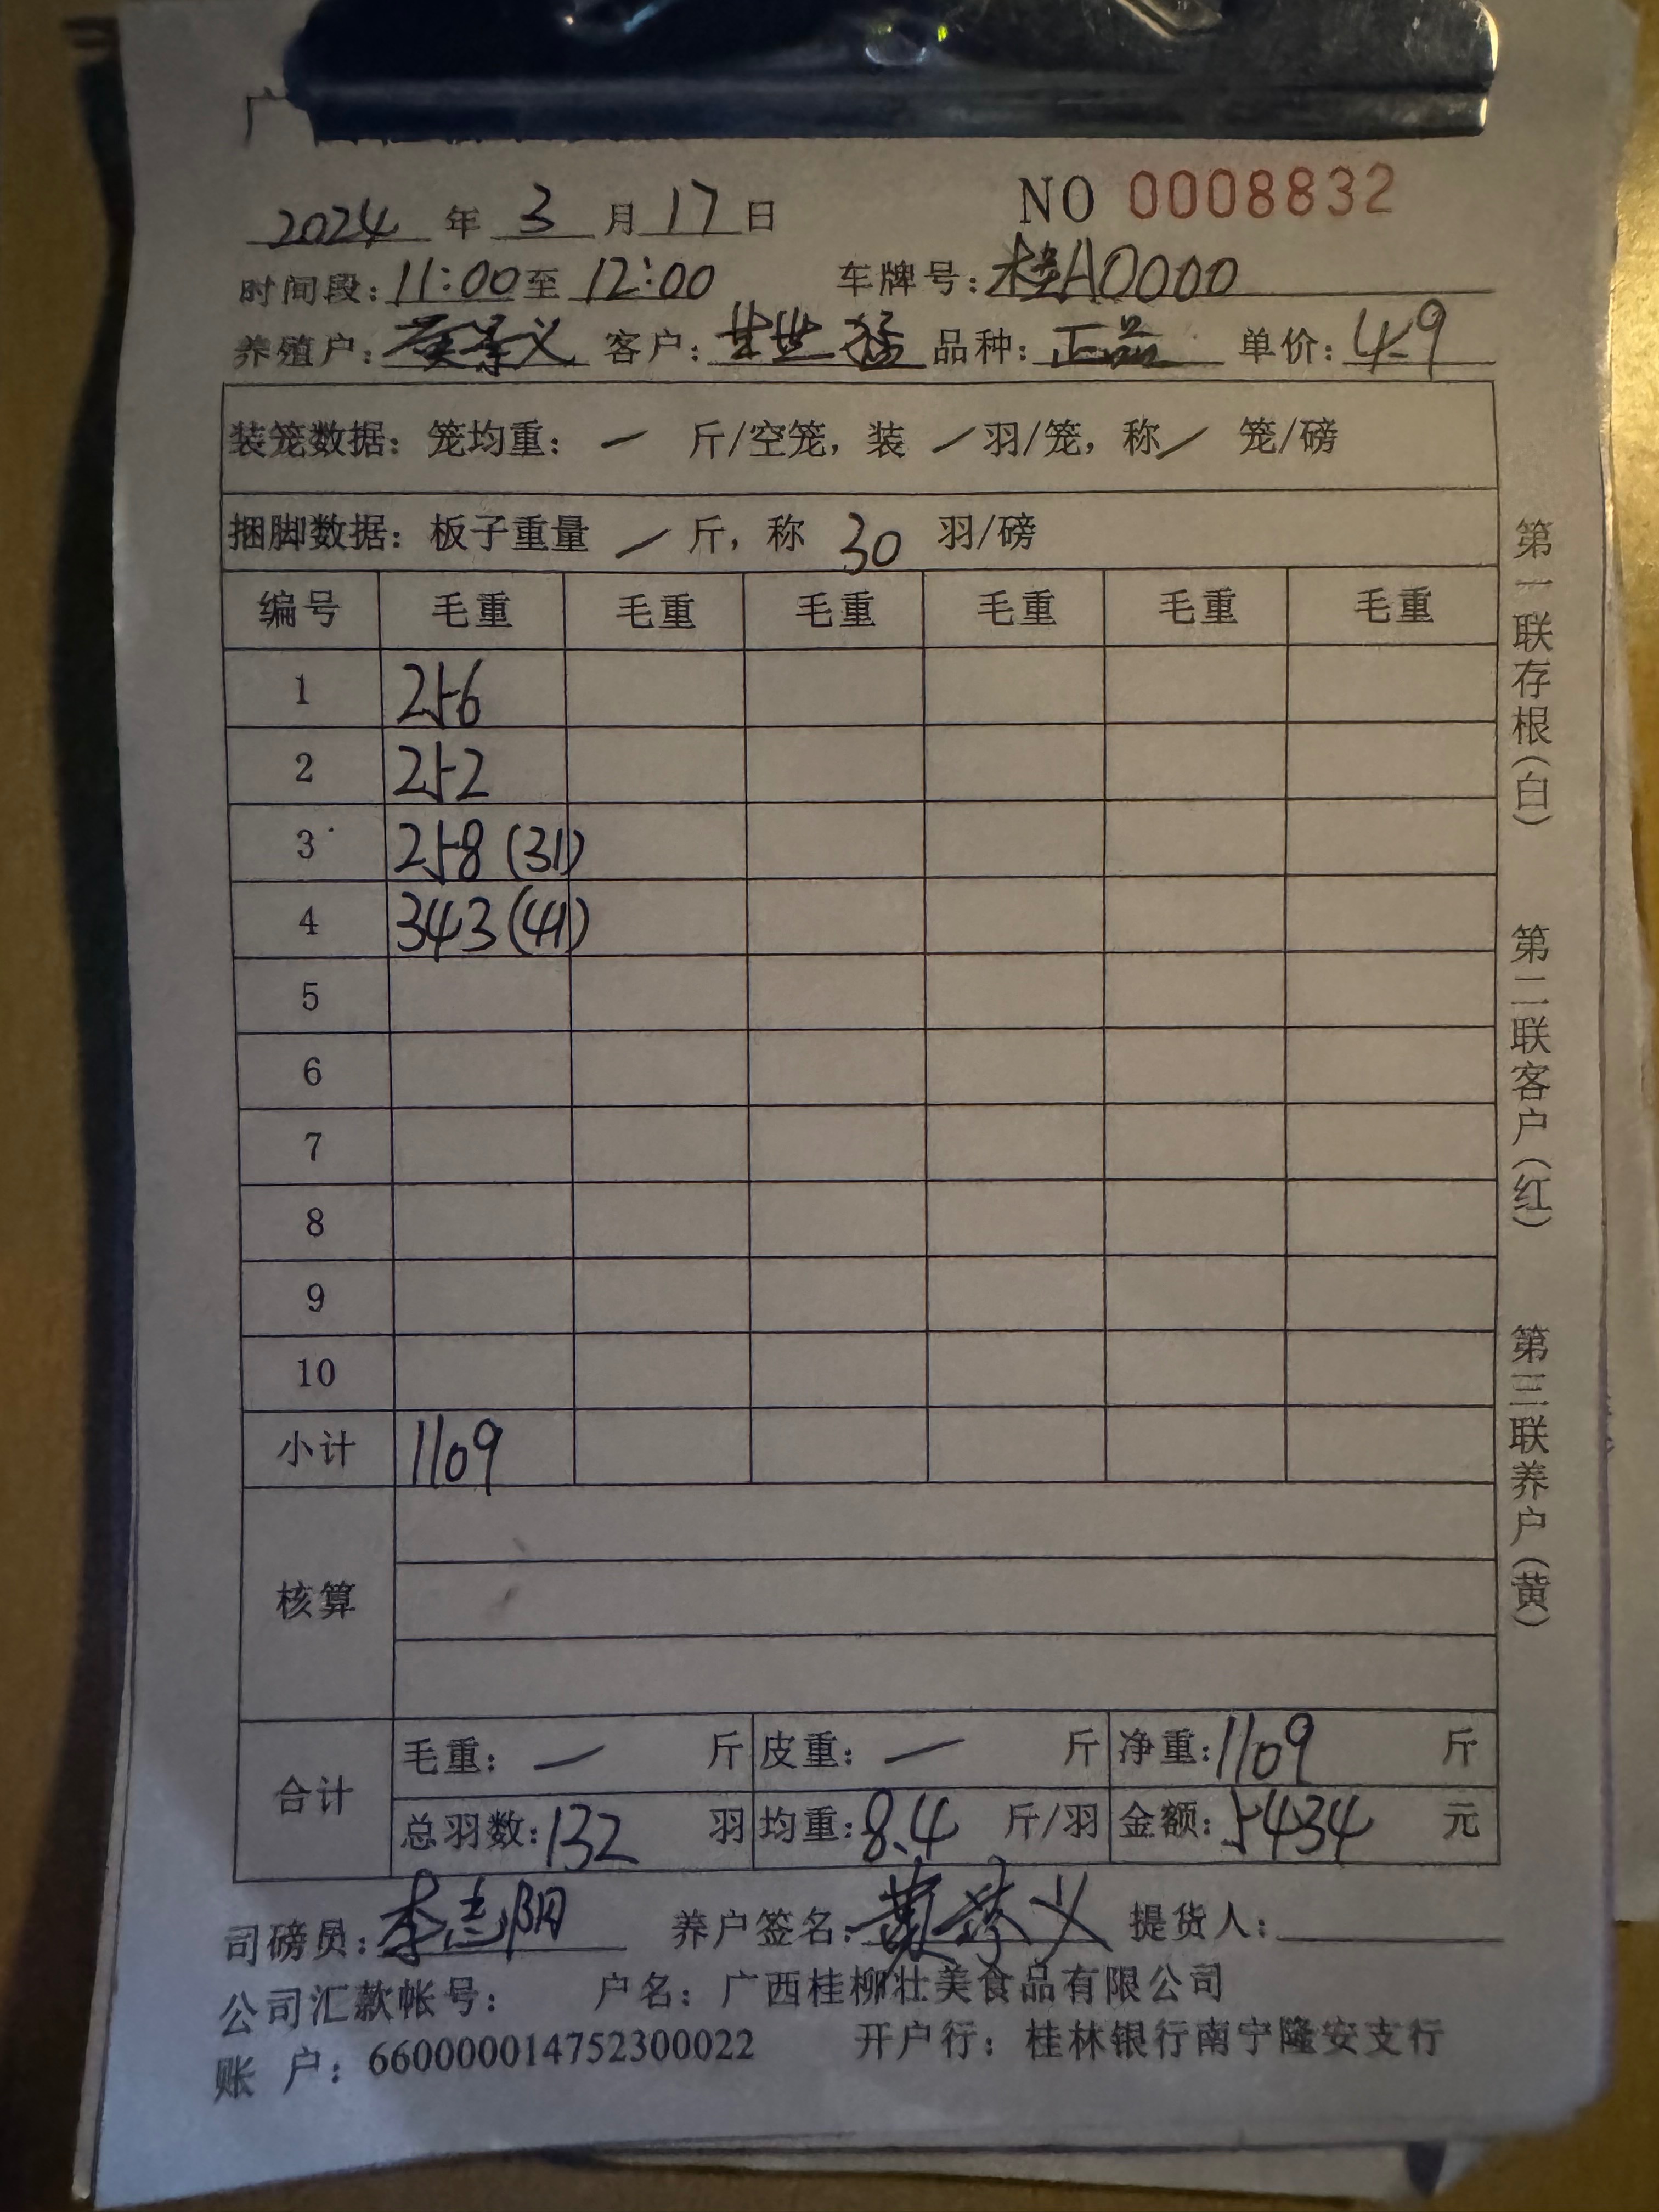 广
NO 0008832
2024 年 3 月 17 日
时间段: 11:00 至 12:00 车牌号: 桂A0000
养殖户: 黄孝义 客户: 猛 品种: 正品 单价: 4.9
装笼数据: 笼均重: — 斤/空笼, 装 / 羽/笼, 称 / 笼/磅
捆脚数据: 板子重量 / 斤, 称 30 羽/磅
编号 毛重 毛重 毛重 毛重 毛重 毛重
1 256
2 252
3 258 (31)
4 343 (41)
5
6
7
8
9
10
小计 1109
核算
合计 毛重: — 斤 皮重: — 斤 净重: 1109 斤
总羽数: 132 羽 均重: 8.4 斤/羽 金额: 5434 元
司磅员: 李志阳 养户签名: 黄孝义 提货人:
公司汇款帐号: 户名: 广西桂柳壮美食品有限公司
账 户: 660000014752300022 开户行: 桂林银行南宁隆安支行
第一联存根(白) 第二联客户(红) 第三联养户(黄)